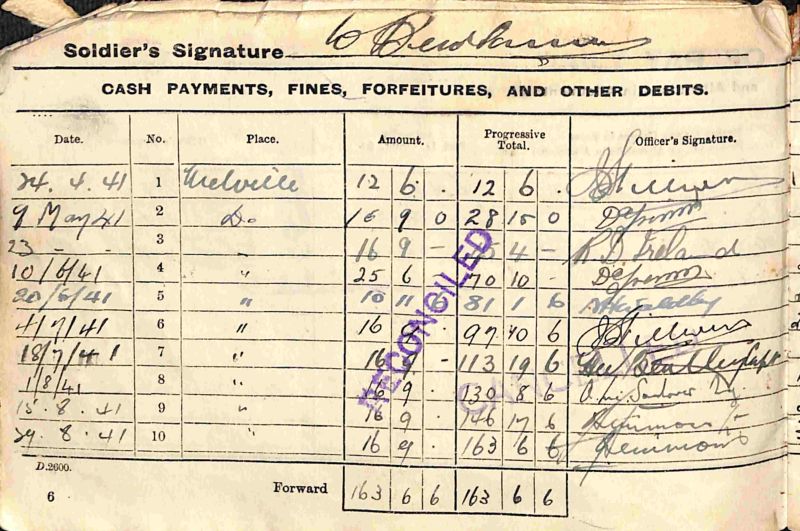 Soldier's Signature
CASH PAYMENTS, FINES, FORFEITURES, AND OTHER DEBITS.
Date. No. Place. Amount. Progressive Total. Officer's Signature.
24.4.41 1 Melville 12 6 . 12 6 .
9 May 41 2 Do. 16 9 0 28 15 0
23 - - 3 " 16 9 - 4 - R. D. Ireland
10/6/41 4 " 25 6 70 10 -
20/6/41 5 " 10 11 6 81 1 6
4/7/41 6 " 16 9 . 97 10 6
18/7/41 7 " 16 9 - 113 19 6
1/8/41 8 " 16 9 . 130 8 6
15.8.41 9 " 16 9 146 17 6
29.8.41 10 " 16 9 . 163 6 6
RECONCILED
D.2600.
6 Forward 163 6 6 163 6 6